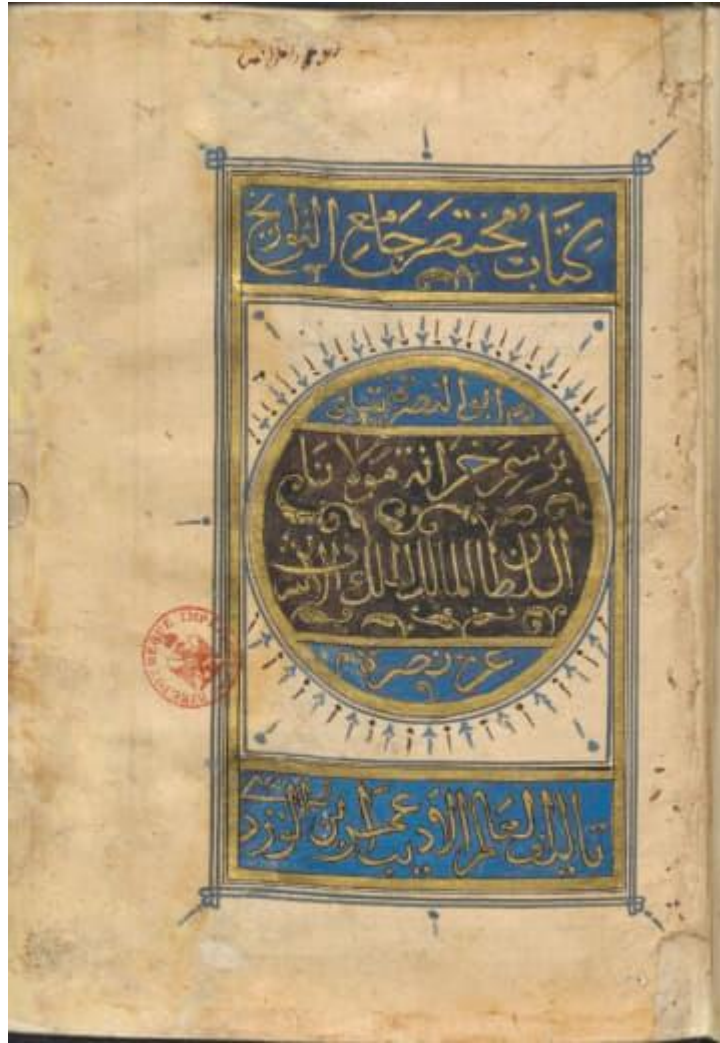 كتاب مختصر جامع التواريخ
ابو النصر قايتباي
برسم خزانة مولانا
السلطان المالك الملك الاشرف
عز نصره
تاليف العالم الاديب عمر بن الوردي